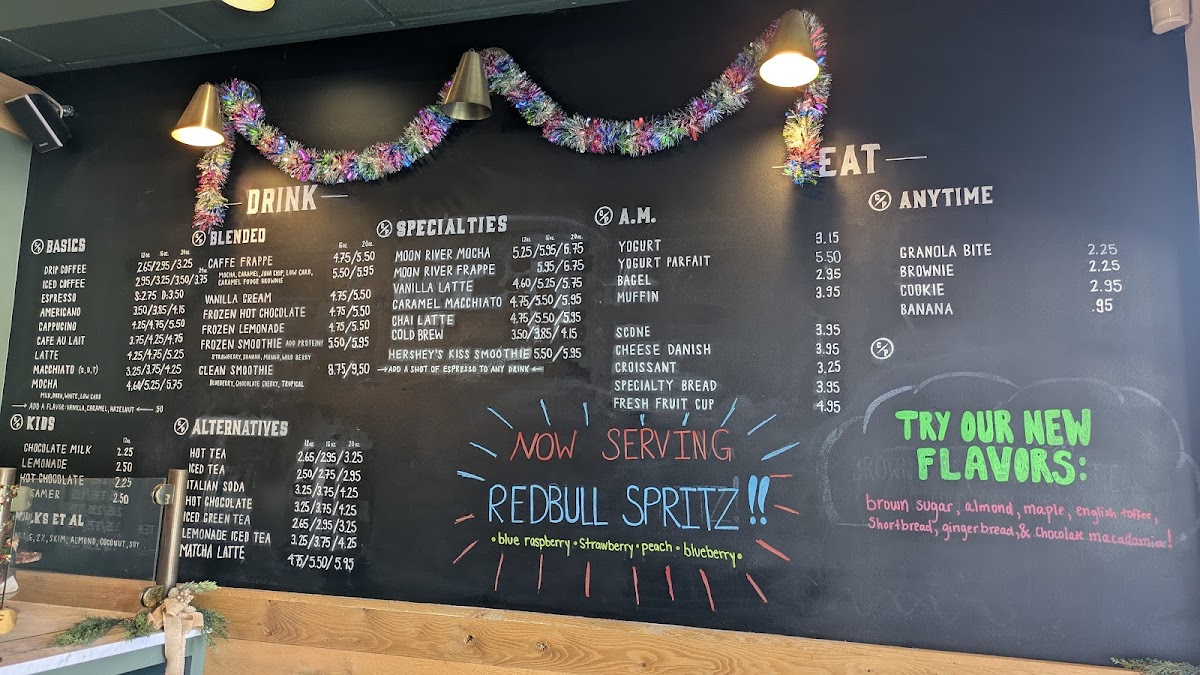 DRINK
BASICS
12oz. 16oz. 20oz.
DRIP COFFEE 2.65/2.95/3.25
24oz.
ICED COFFEE 2.95/3.25/3.50/3.75
ESPRESSO S:2.75 D:3.50
AMERICANO 3.50/3.85/4.15
CAPPUCINO 4.25/4.75/5.50
CAFE AU LAIT 3.75/4.25/4.75
LATTE 4.25/4.75/5.25
MACCHIATO (S,D,T) 3.25/3.75/4.25
MOCHA 4.60/5.25/5.75
MILK, DARK, WHITE, LOW CARB
ADD A FLAVOR: VANILLA, CARAMEL, HAZELNUT .50
KIDS
12oz.
CHOCOLATE MILK 2.25
LEMONADE 2.50
HOT CHOCOLATE 2.25
2.50
ET AL
2%, SKIM, ALMOND, COCONUT, SOY
BLENDED
16oz. 20oz.
CAFFE FRAPPE 4.75/5.50
MOCHA, CARAMEL, JAVA CHIP, LOW CARB, 5.50/5.95
CARAMEL FUDGE BROWNIE
VANILLA CREAM 4.75/5.50
FROZEN HOT CHOCOLATE 4.75/5.50
FROZEN LEMONADE 4.75/5.50
FROZEN SMOOTHIE ADD PROTEIN! 5.50/5.95
STRAWBERRY, BANANA, MANGO, WILD BERRY
CLEAN SMOOTHIE 8.75/9.50
BLUEBERRY, CHOCOLATE CHERRY, TROPICAL
ALTERNATIVES
12oz. 16oz. 20oz.
HOT TEA 2.65/2.95/3.25
ICED TEA 2.50/2.75/2.95
ITALIAN SODA 3.25/3.75/4.25
HOT CHOCOLATE 3.25/3.75/4.25
ICED GREEN TEA 2.65/2.95/3.25
LEMONADE ICED TEA 3.25/3.75/4.25
MATCHA LATTE 4.75/5.50/5.95
SPECIALTIES
12oz. 16oz. 20oz.
MOON RIVER MOCHA 5.25/5.95/6.75
MOON RIVER FRAPPE 5.95/6.75
VANILLA LATTE 4.60/5.25/5.75
CARAMEL MACCHIATO 4.75/5.50/5.95
CHAI LATTE 4.75/5.50/5.95
COLD BREW 3.50/3.85/4.15
HERSHEY'S KISS SMOOTHIE 5.50/5.95
ADD A SHOT OF ESPRESSO TO ANY DRINK
EAT
A.M.
YOGURT 3.15
YOGURT PARFAIT 5.50
BAGEL 2.95
MUFFIN 3.95
SCONE 3.95
CHEESE DANISH 3.95
CROISSANT 3.25
SPECIALTY BREAD 3.95
FRESH FRUIT CUP 4.95
ANYTIME
GRANOLA BITE 2.25
BROWNIE 2.25
COOKIE 2.95
BANANA .95
NOW SERVING
REDBULL SPRITZ!!
• blue raspberry • strawberry • peach • blueberry •
TRY OUR NEW
FLAVORS:
brown sugar, almond, maple, english toffee,
Shortbread, gingerbread, & Chocolate macadamia!